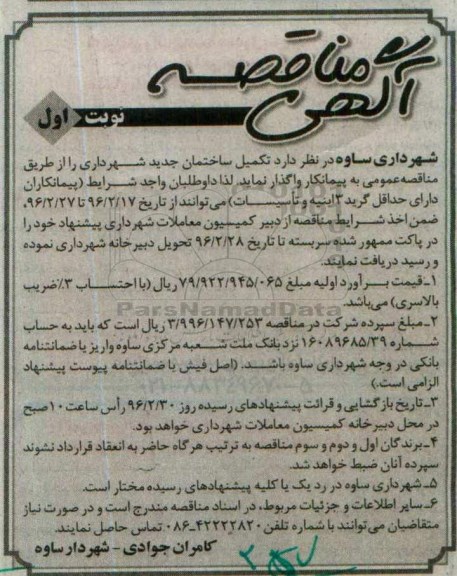 آگهی مناقصه
نوبت اول
شهرداری ساوه در نظر دارد تکمیل ساختمان جدید شهرداری را از طریق
مناقصه‌عمومی به پیمانکار واگذار نماید. لذا داوطلبان واجد شرایط (پیمانکاران
دارای حداقل گرید ۳ ابنیه و تأسیسات) می‌توانند از تاریخ ۹۶/۲/۱۷ تا ۹۶/۲/۲۷،
ضمن اخذ شرایط مناقصه از دبیر کمیسیون معاملات شهرداری پیشنهاد خود را
در پاکت ممهور شده سربسته تا تاریخ ۹۶/۲/۲۸ تحویل دبیرخانه شهرداری نموده
و رسید دریافت نمایند.
۱ـ قیمت برآورد اولیه مبلغ ۷۹/۹۲۲/۹۴۵/۰۶۵ ریال (با احتساب ۳٪ ضریب
بالاسری) می‌باشد.
۲ـ مبلغ سپرده شرکت در مناقصه ۳/۹۹۶/۱۴۷/۲۵۳ ریال است که باید به حساب
شماره ۱۶۰۸۹۶۸۵/۳۹ نزد بانک ملت شعبه مرکزی ساوه واریز یا ضمانتنامه
بانکی در وجه شهرداری ساوه باشد. (اصل فیش یا ضمانتنامه پیوست پیشنهاد
الزامی است.)
۳ـ تاریخ بازگشایی و قرائت پیشنهادهای رسیده روز ۹۶/۲/۳۰ رأس ساعت ۱۰ صبح
در محل دبیرخانه کمیسیون معاملات شهرداری خواهد بود.
۴ـ برندگان اول و دوم و سوم مناقصه به ترتیب هرگاه حاضر به انعقاد قرارداد نشوند
سپرده آنان ضبط خواهد شد.
۵ـ شهرداری ساوه در رد یک یا کلیه پیشنهادهای رسیده مختار است.
۶ـ سایر اطلاعات و جزئیات مربوط، در اسناد مناقصه مندرج است و در صورت نیاز
متقاضیان می‌توانند با شماره تلفن ۴۲۲۲۲۸۲۰ـ۰۸۶ تماس حاصل نمایند.
کامران جوادی - شهردار ساوه
ParsNamadData